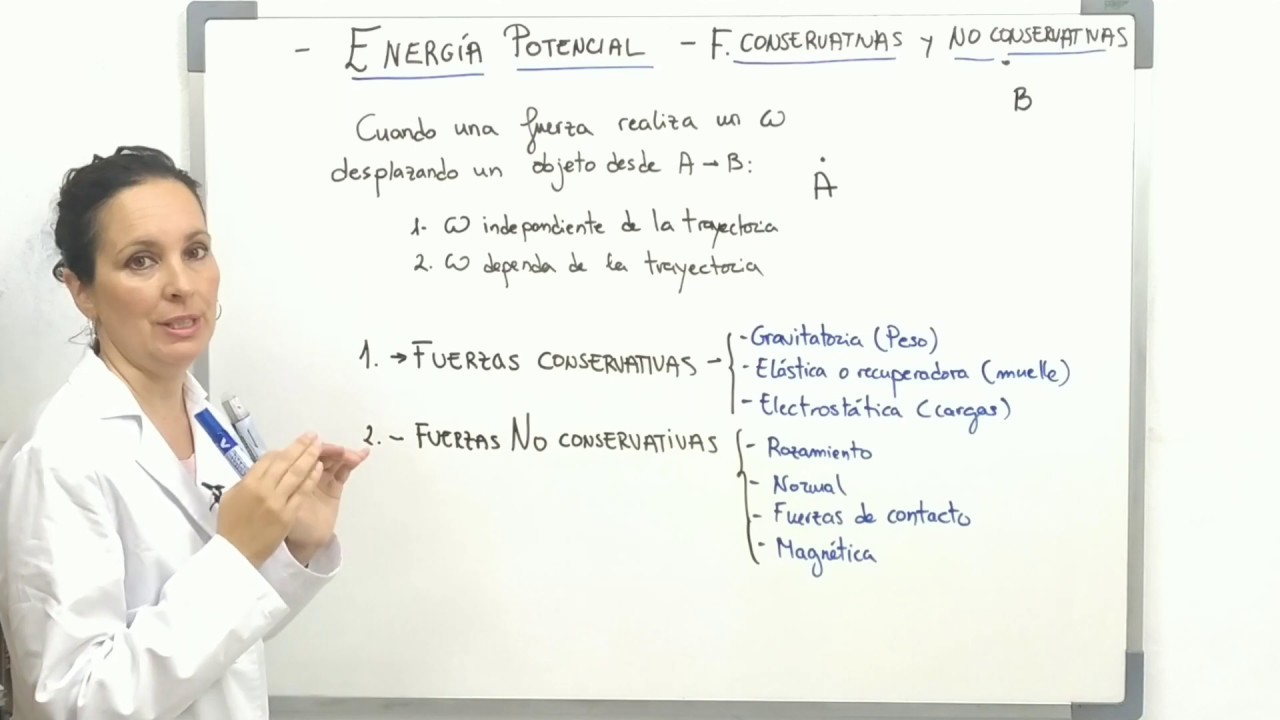 - ENERGÍA POTENCIAL - F. CONSERVATIVAS y NO CONSERVATIVAS
B
Cuando una fuerza realiza un ω
desplazando un objeto desde A → B:
A
1- ω independiente de la trayectoria
2. ω dependa de la trayectoria
1. → FUERZAS CONSERVATIVAS -
- Gravitatoria (Peso)
- Elástica o recuperadora (muelle)
- Electrostática (cargas)
2. - FUERZAS NO CONSERVATIVAS
- Rozamiento
- Normal
- Fuerzas de contacto
- Magnética